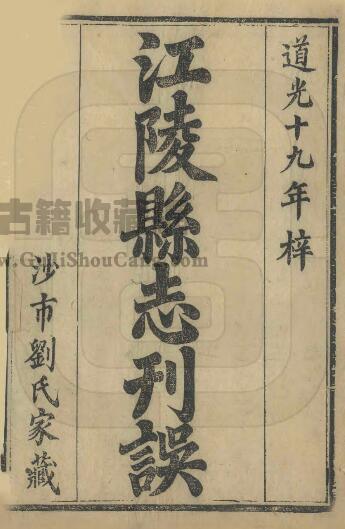 道光十九年梓
江陵縣志刊誤
沙市劉氏家藏
古籍收藏
www.GuJiShouCang.com